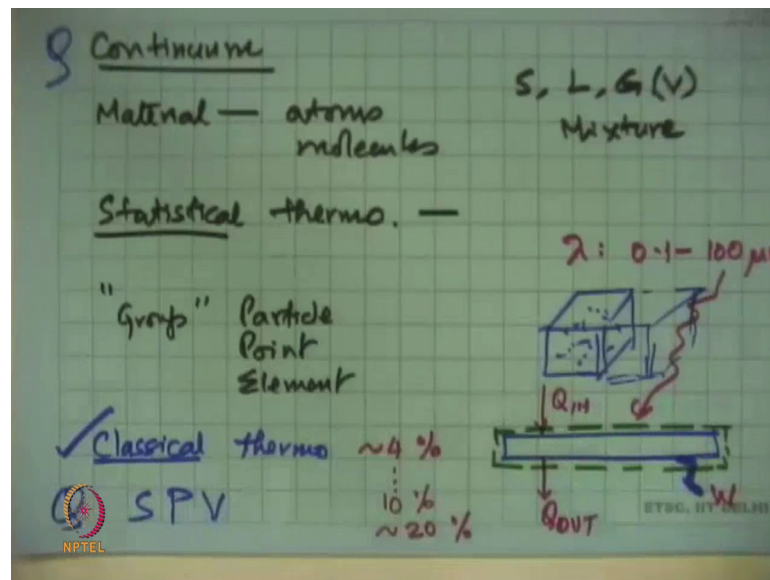 Continuum
Material — atoms
molecules
S, L, G (V)
Mixture
Statistical thermo. —
λ: 0.1 - 100 μm
"Group" Particle
Point
Element
QIN
Classical thermo ~4 %
SPV 10 %
~20 %
QOUT
W
ETSC, IIT DELHI
NPTEL